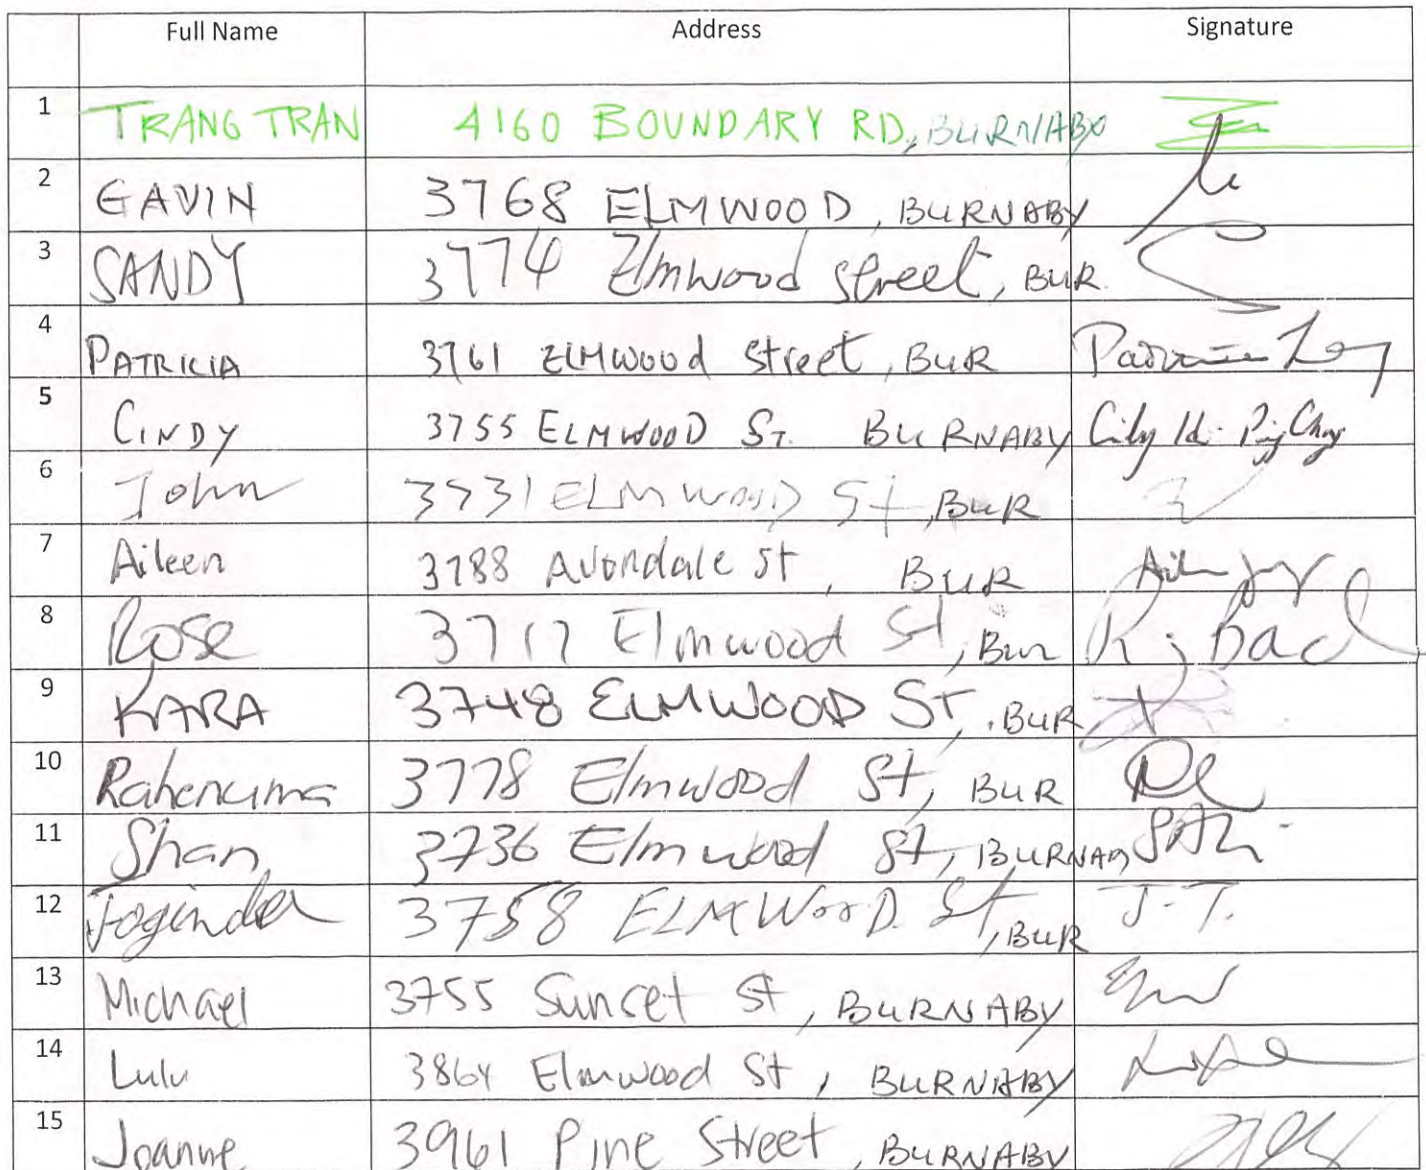 Full Name Address Signature
1 TRANG TRAN 4160 BOUNDARY RD, BURNABY
2 GAVIN 3768 ELMWOOD, BURNABY
3 SANDY 3774 Elmwood street, BUR.
4 PATRICIA 3761 ELMWOOD Street, BUR
5 CINDY 3755 ELMWOOD ST. BURNABY
6 John 3731 ELMWOOD St, BUR
7 Aileen 3788 Avondale st, BUR
8 Rose 3717 Elmwood St, Bur
9 KARA 3748 ELMWOOD ST, BUR
10 Rahenuma 3778 Elmwood St, BUR
11 Shan 3736 Elmwood St,
12 Joginder 3758 ELMWOOD. St, BUR J-T.
13 Michael 3755 Sunset st, BURNABY
14 Lulu 3864 Elmwood St, BURNABY
15 Joanne 3961 Pine Street, BURNABY